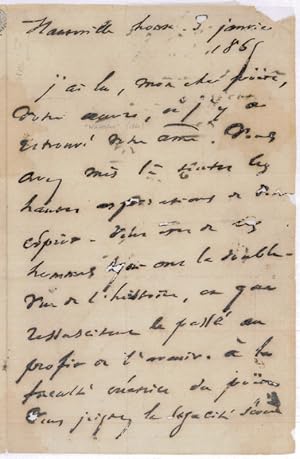 Hauteville house 3 janvier
1865
j'ai lu, mon cher poëte,
votre œuvre, et j'y ai
retrouvé votre âme. Vous
avez mis là toutes les
hautes aspirations de votre
esprit. Vous êtes de ces
hommes qui ont la double-
vue de l'histoire, et qui
ressuscitent le passé au
profit de l'avenir. à la
faculté créatrice du poëte
vous joignez la sagacité